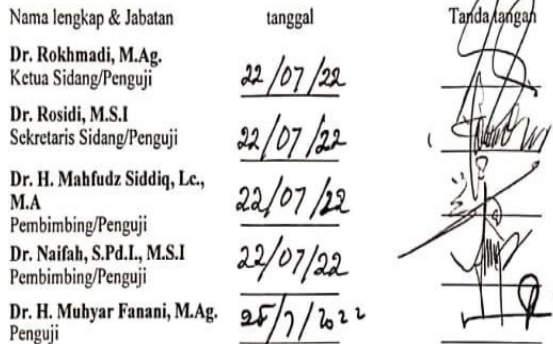 Nama lengkap & Jabatan tanggal Tanda tangan
Dr. Rokhmadi, M.Ag.
Ketua Sidang/Penguji 22/07/22
Dr. Rosidi, M.S.I
Sekretaris Sidang/Penguji 22/07/22
Dr. H. Mahfudz Siddiq, Lc.,
M.A 22/07/22
Pembimbing/Penguji
Dr. Naifah, S.Pd.I., M.S.I 22/07/22
Pembimbing/Penguji
Dr. H. Muhyar Fanani, M.Ag. 25/7/2022
Penguji